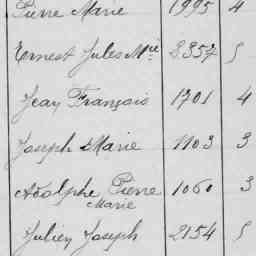 Pierre Marie 1995 4
Ernest Jules Mie 2357 5
Jean François 1701 4
Joseph Marie 1103 3
Adolphe Pierre 1060 3
Marie
Julien Joseph 2154 5